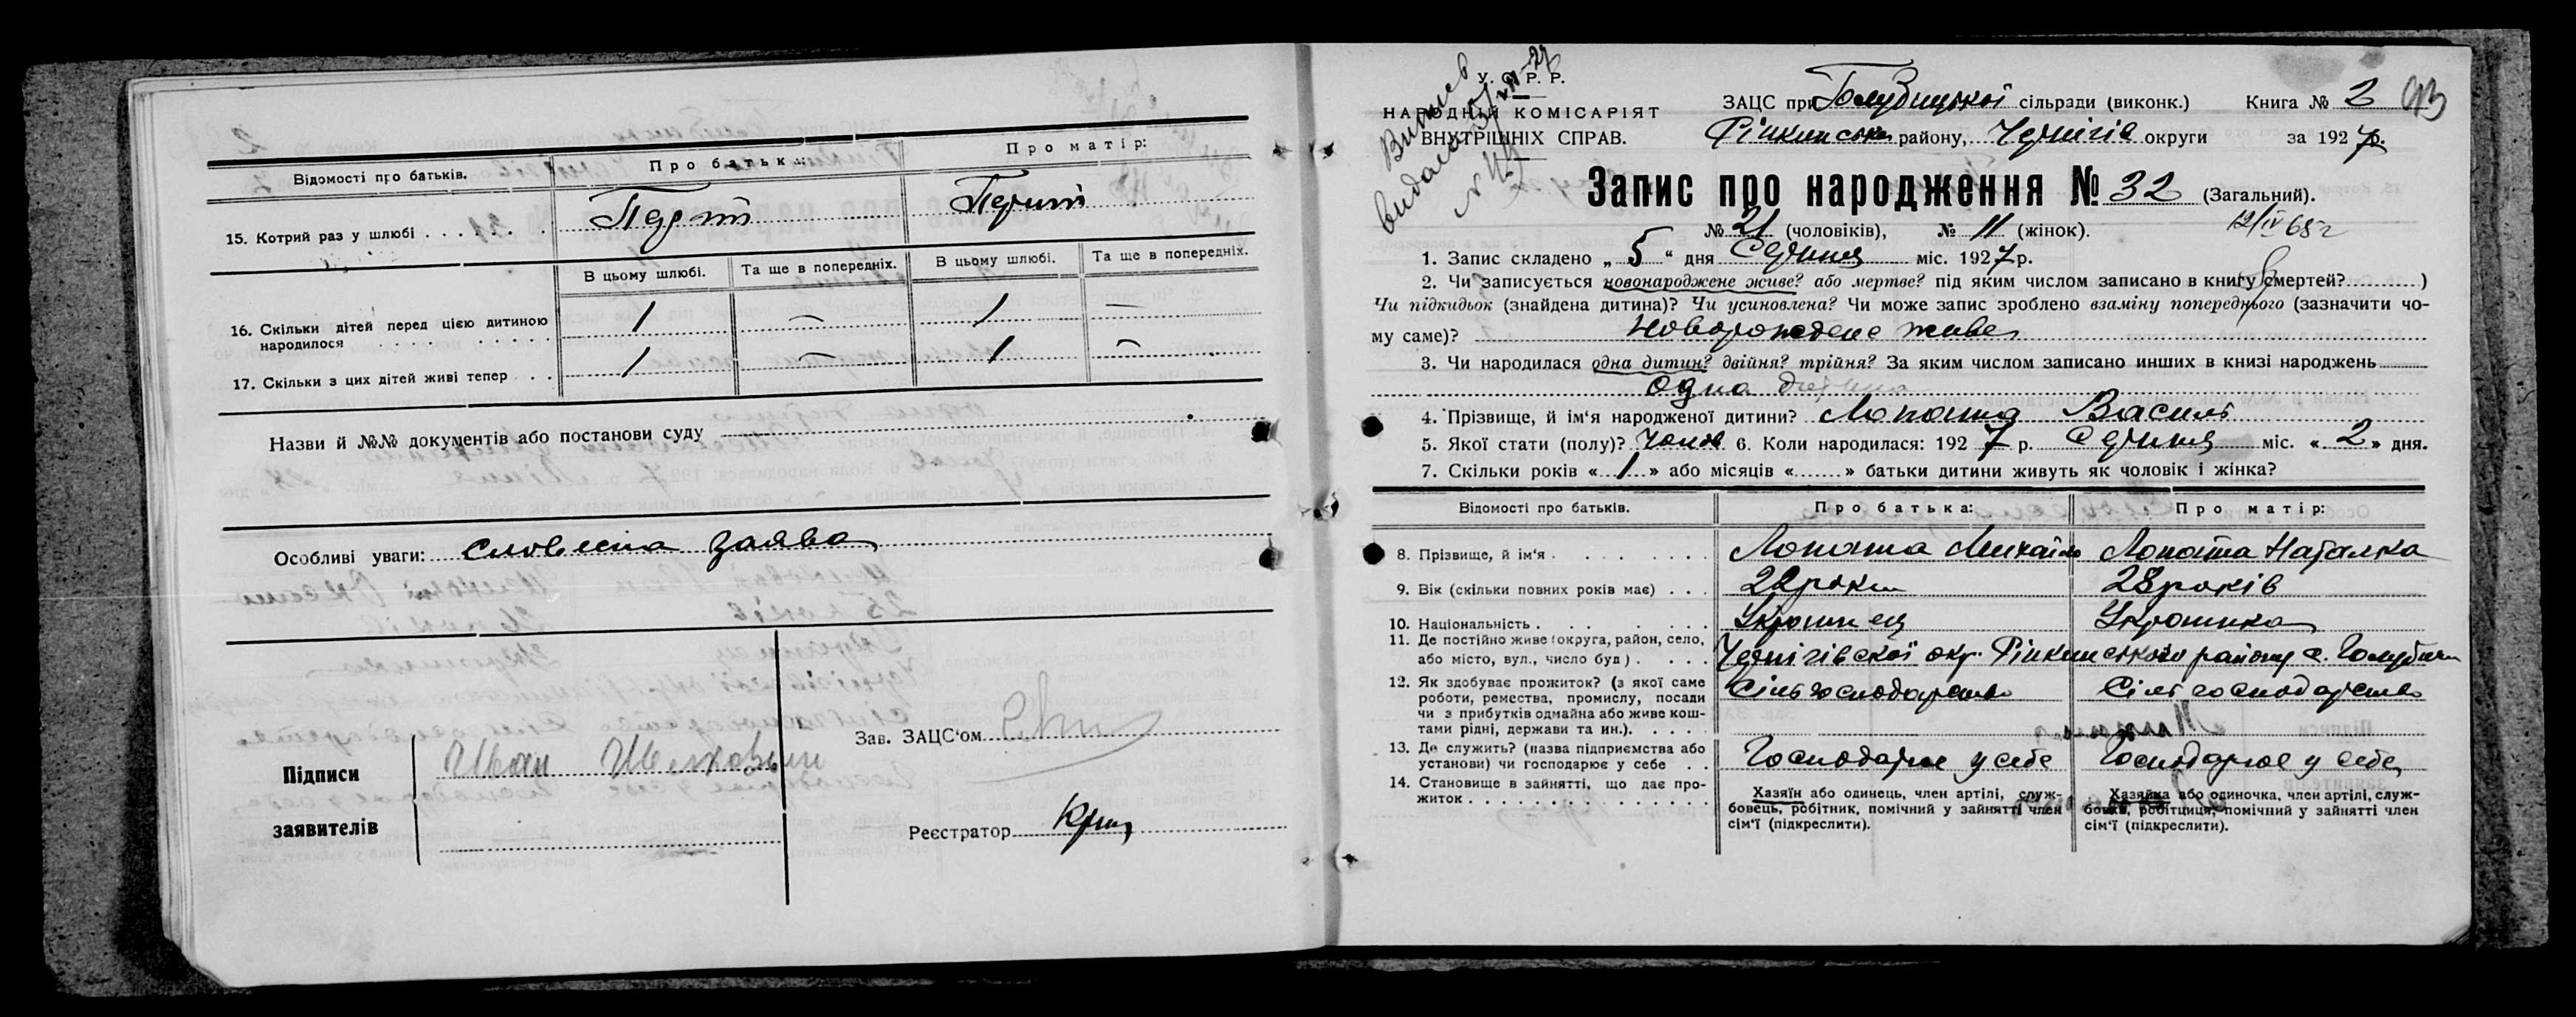 Відомості про батьків.
Про батька:
Про матір:
15. Котрий раз у шлюбі
Перший
В цьому шлюбі. Та ще в попередніх. В цьому шлюбі. Та ще в попередніх.
16. Скільки дітей перед цією дитиною народилося 1 — 1 —
17. Скільки з цих дітей живі тепер 1 — 1 —
Назви й №№ документів або постанови суду
Особливі уваги: словесна заява
Підписи заявителів
Иван
Зав. ЗАЦС'ом
Реєстратор
У. С. Р. Р.
НАРОДНІЙ КОМІСАРІЯТ
ВНУТРІШНІХ СПРАВ.
ЗАЦС при Голубицької сільради (виконк.) Книга № 2 93
Ріпкинськ району, Чернігів округи за 1927 р.
Запис про народження № 32 (Загальний).
№ 21 (чоловіків), № 11 (жінок).
12/IV 68 г
1. Запис складено „ 5 “ дня Сечня міс. 1927 р.
2. Чи записується новонароджене живе? або мертве? під яким числом записано в книгу смертей? )
Чи підкидьок (знайдена дитина)? Чи усиновлена? Чи може запис зроблено взаміну попереднього (зазначити чо-
му саме)? Новорождене живе
3. Чи народилася одна дитин? двійня? трійня? За яким числом записано инших в книзі народжень
одна дитина
4. Прізвище, й ім'я народженої дитини? Лопата Василь
5. Якої стати (полу)? Чолов 6. Коли народилася: 1927 р. Сечня міс. « 2 » дня.
7. Скільки років « 1 » або місяців « » батьки дитини живуть як чоловік і жінка?
Відомості про батьків. Про батька: Про матір:
8. Прізвище, й ім'я Лопата Михайло Лопата Наталка
9. Вік (скільки повних років має) 22 роки 28 років
10. Національність Українец Українка
11. Де постійно живе (округа, район, село,
або місто, вул., число буд) Чернігівської окр. Ріпкинського району с. Голубичи
12. Як здобуває прожиток? (з якої саме Сільгосподарство Сільгосподарство
роботи, ремества, промислу, посади
чи з прибутків одмайна або живе кош-
тами рідні, держави та ин.).
13. Де служить? (назва підприємства або
установи) чи господарює у себе Господарює у себе Господарює у себе
14. Становище в зайнятті, що дає про-
житок
Хазяїн або одинець, член артілі, служ-
бовець, робітник, помічний у зайнятті член
сім'ї (підкреслити).
Хазяйка або одиночка, член артілі, служ-
бовка, робітниця, помічний у зайнятті член
сім'ї (підкреслити).